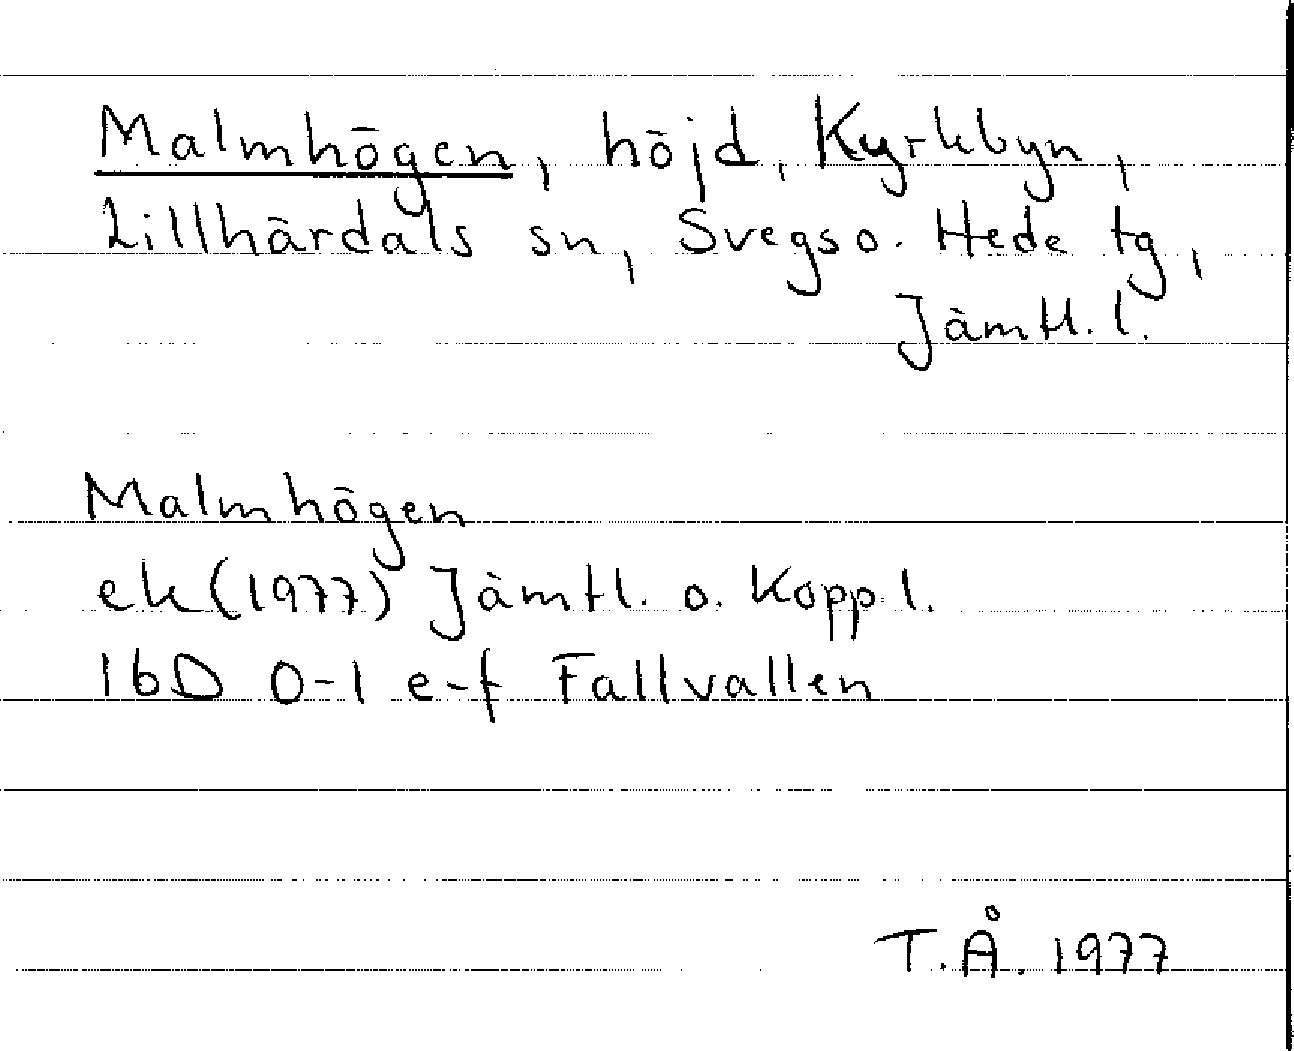 Malmhögen, höjd, Kyrkbyn,
Lillhärdals sn, Svegs o. Hede tg,
Jämtl. l.
Malmhögen
ek (1977) Jämtl. o. Kopp. l.
16D 0-1 e-f Fallvallen
T.Å. 1977